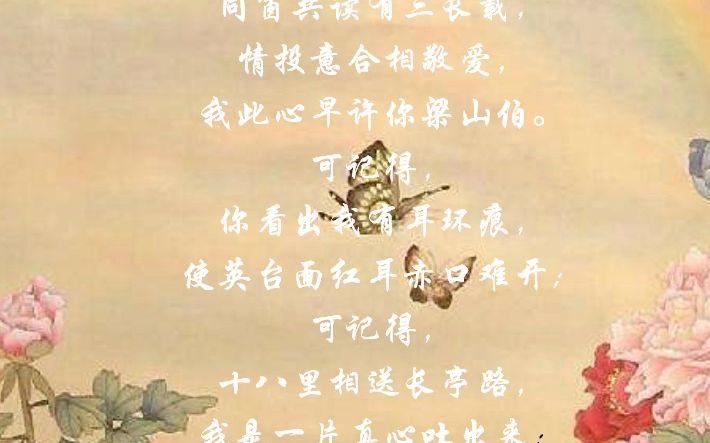 同窗共读有三长载，
情投意合相敬爱，
我此心早许你梁山伯。
可记得，
你看出我有耳环痕，
使英台面红耳赤口难开；
可记得，
十八里相送长亭路，
我是一片真心吐出来；